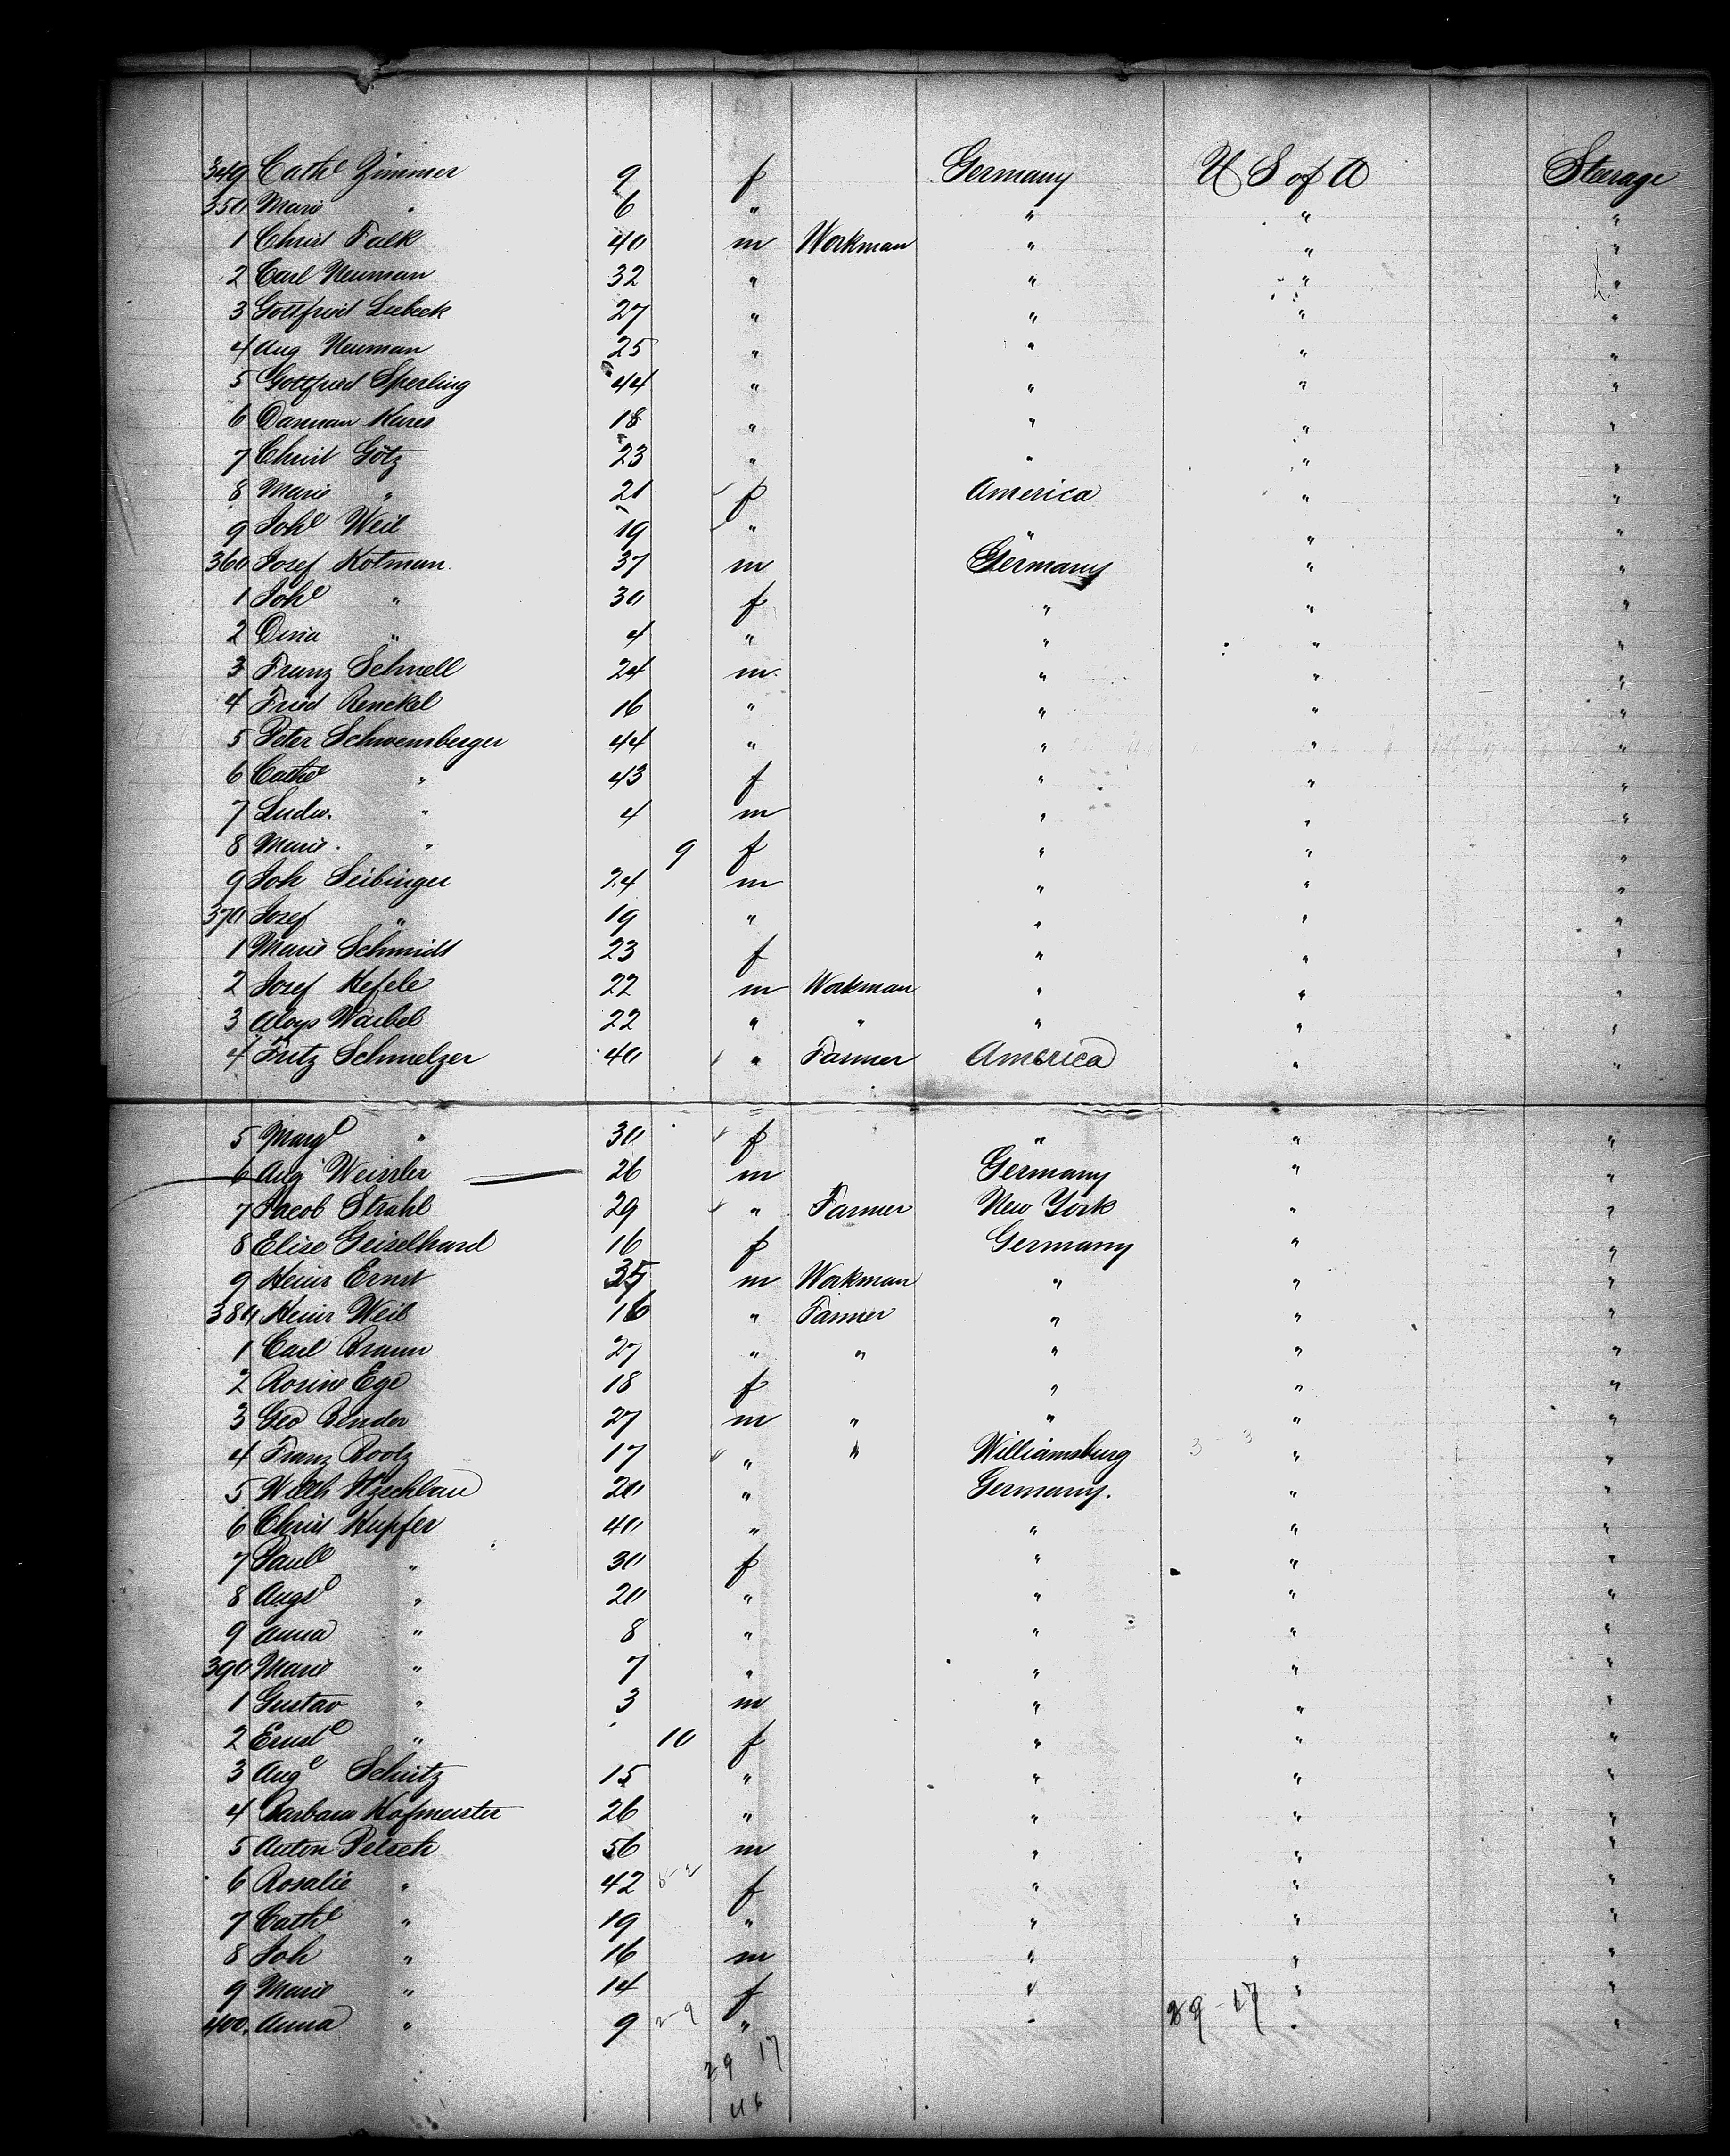 349 Cathe Zimmer 9 f Germany U S of A Steerage
350 Marie " 6 " " " "
1 Christ Falk 40 m Workman " " "
2 Carl Neuman 32 " " " "
3 Gottfried Luebeck 27 " " " "
4 Aug Neuman 25 " " " "
5 Gottfried Sperling 44 " " " "
6 Damian Kares 18 " " " "
7 Christ Götz 23 " " " "
8 Marie " 21 f America " "
9 Johe Weil 19 " " " "
360 Josef Kotman 37 m Germany " "
1 Johe " 30 f " " "
2 Dina " 4 " " " "
3 Franz Schnell 24 m " " "
4 Fried Renckel 16 " " " "
5 Peter Schwemberger 44 " " " "
6 Cathe " 43 f " " "
7 Ludw. " 4 m " " "
8 Marie " 9 f " " "
9 Joh Seibinger 24 m " " "
370 Josef " 19 " " " "
1 Marie Schmidt 23 f " " "
2 Josef Hefele 22 m Workman " " "
3 Aloys Waibel 22 " " " " "
4 Fritz Schmelzer 40 " Farmer America " "
5 Marge " 30 f " " "
6 Aug Weissler 26 m Germany " "
7 Jacob Strahl 29 " Farmer New York " "
8 Elise Geiselhard 16 f Germany " "
9 Heinr Ernst 35 m Workman " " "
380 Heinr Weib 16 " Farmer " " "
1 Carl Braun 27 " " " " "
2 Rosine Ege 18 f " " "
3 Geo Bender 27 m " " " "
4 Franz 17 " " Williamsburg 3 - 3 " "
5 Wilh 20 " Germany. " "
6 Christ Hupfer 40 " " " "
7 Paule " 30 f " " "
8 Augse " 20 " " " "
9 Anna " 8 " " " "
390 Marie " 7 " " " "
1 Gustav " 3 m " " "
2 Ernste " 10 f " " "
3 Auge Schütz 15 " " " "
4 Barbara Hofmeister 26 " " " "
5 Anton Petsch 56 m " " "
6 Rosalie " 42 f " " "
7 Cathe " 19 " " " "
8 Joh " 16 m " " "
9 Marie " 14 f " " "
400. Anna " 9 2-9 " " 29-17 " "
29 17
46